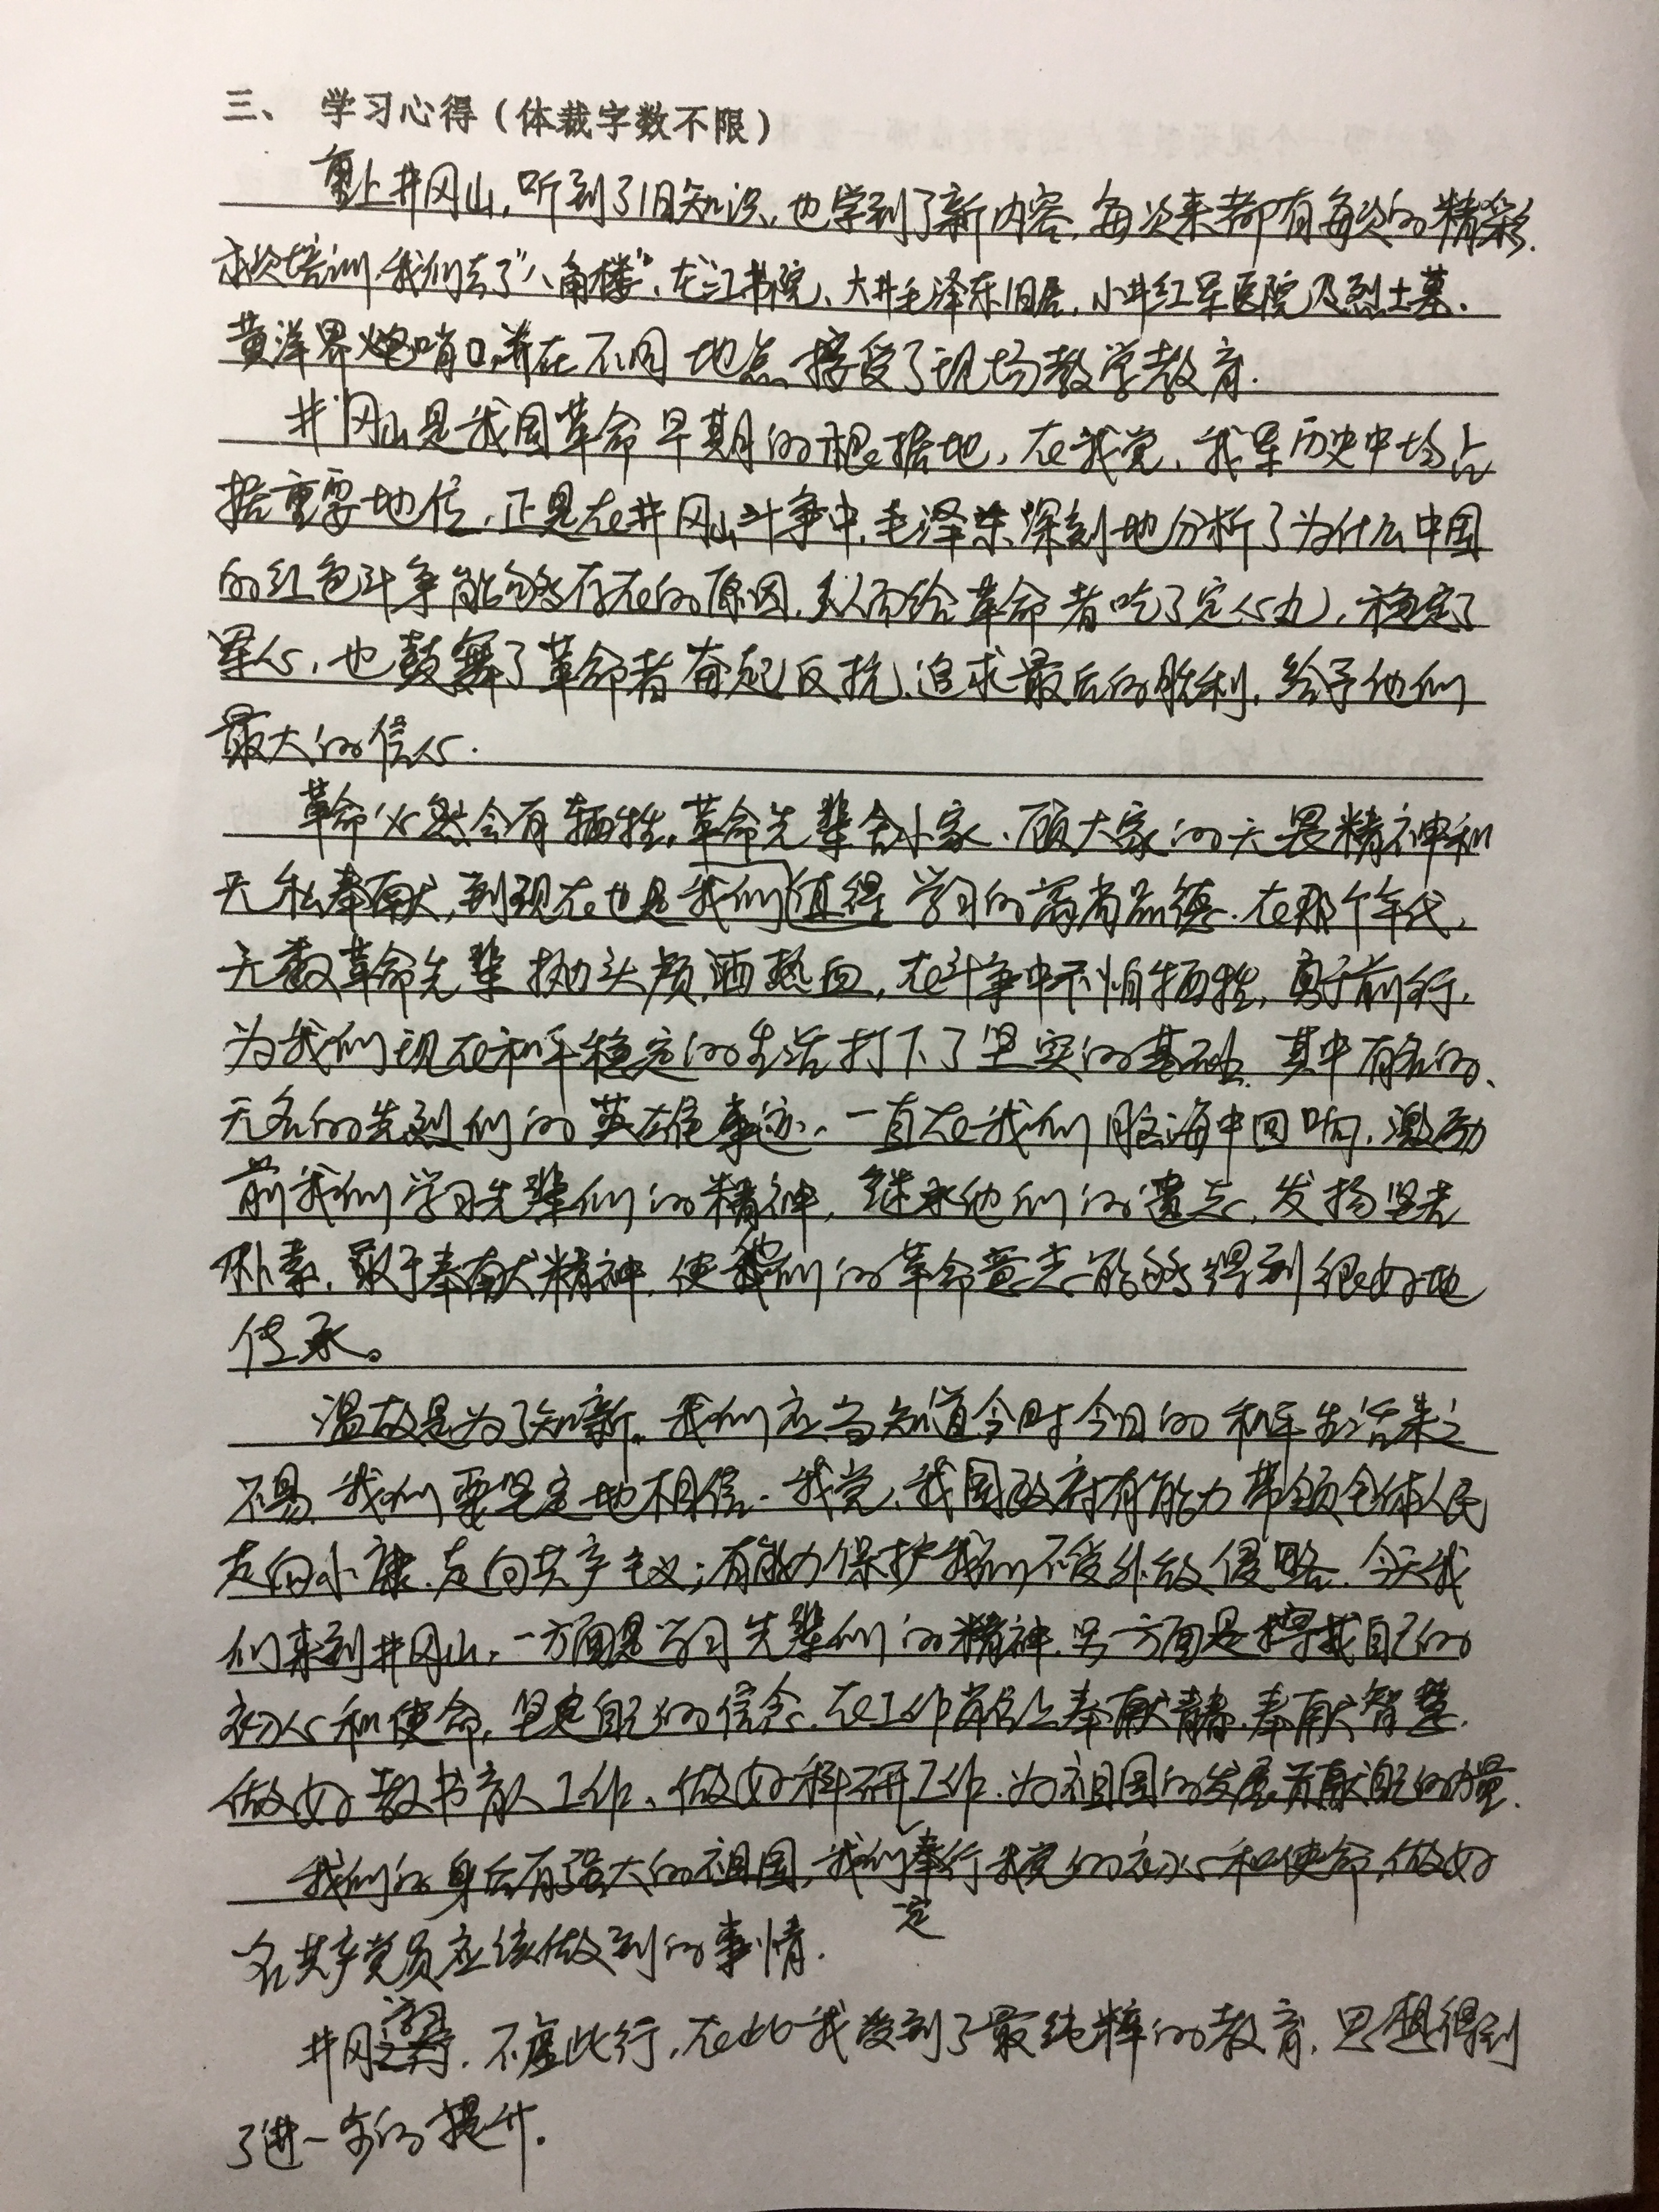 三、 学习心得（体裁字数不限）
重上井冈山，听到了旧知识，也学到了新内容，每次来都有每次的精彩．
本次培训，我们去了“八角楼”、龙江书院、大井毛泽东旧居，小井红军医院及烈士墓、
黄洋界炮哨口，并在不同地点接受了现场教学教育．
井冈山是我国革命早期的根据地，在我党、我军历史中均占
据重要地位，正是在井冈山斗争中，毛泽东深刻地分析了为什么中国
的红色斗争能够存在的原因，从而给革命者吃了定心丸，稳定了
军心，也鼓舞了革命者奋起反抗，追求最后的胜利，给予他们
最大的信心．
革命必然会有牺牲，革命先辈舍小家、顾大家的无畏精神和
无私奉献，到现在也是我们值得学习的高尚品德．在那个年代，
无数革命先辈抛头颅，洒热血，在斗争中不怕牺牲，勇于前行，
为我们现在和平稳定的生活打下了坚实的基础．其中有名的、
无名的先烈们的英雄事迹，一直在我们脑海中回响，激励
前我们学习先辈们的精神，继承他们的遗志，发扬坚苦
朴素，敢于奉献精神，使他们的革命意志能够得到很好地
传承。
温故是为了知新。我们应当知道今时今日的和平生活来之
不易，我们要坚定地相信．我党、我国政府有能力带领全体人民
走向小康，走向共产主义；有能力保护我们不受外敌侵略．今天我
们来到井冈山，一方面是学习先辈们的精神，另一方面是寻找自己的
初心和使命，坚定自己的信念，在工作岗位上奉献青春，奉献智慧．
做好教书育人工作、做好科研工作．为祖国的发展贡献自己的力量．
我们的身后有强大的祖国，我们奉行我党的初心和使命，做好
定
名共产党员应该做到的事情．
井冈之行，不虚此行，在此我受到了最纯粹的教育，思想得到
了进一步的提升．